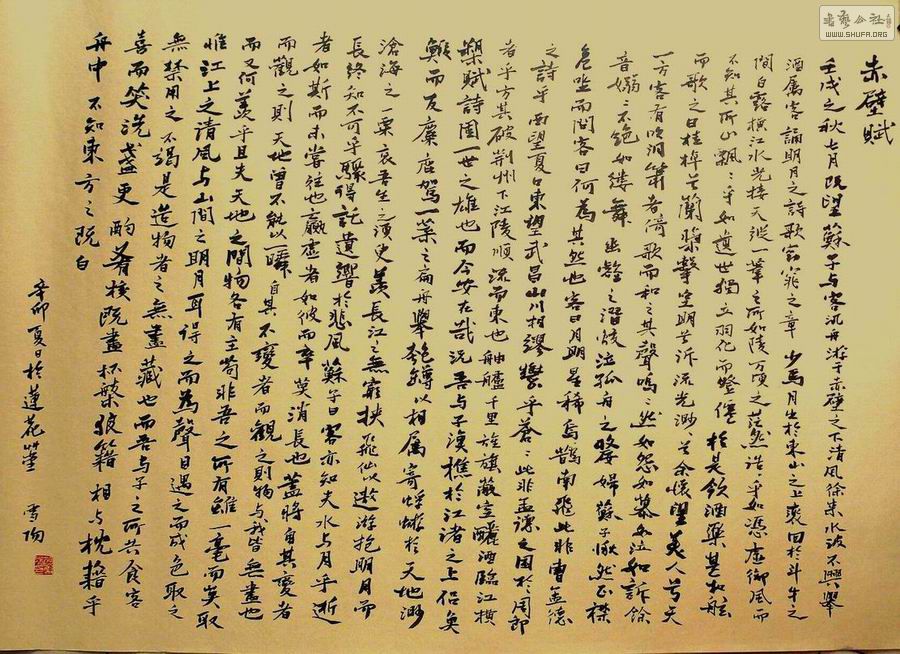 赤壁賦
壬戌之秋七月既望蘇子与客汎舟游于赤壁之下清風徐来水波不興舉
酒属客誦明月之詩歌窈窕之章少焉月出於東山之上裵回於斗牛之
間白露横江水光接天縱一葦之所如陵萬頃之茫然浩乎如馮虚御風而
不知其所止飄〻乎如遺世獨立羽化而登僊於是飲酒樂甚扣舷
而歌之曰桂棹兮蘭槳擊空明兮泝流光渺兮余懷望美人兮天
一方客有吹洞簫者倚歌而和之其聲嗚〻然如怨如慕如泣如訴餘
音嫋〻不絶如縷舞幽壑之潛蛟泣孤舟之嫠婦蘇子愀然正襟
危坐而問客曰何爲其然也客曰月明星稀烏鵲南飛此非曹孟德
之詩乎西望夏口東望武昌山川相繆鬱乎蒼〻此非孟德之困於周郎
者乎方其破荆州下江陵順流而東也舳艫千里旌旗蔽空釃酒臨江横
槊賦詩固一世之雄也而今安在哉況吾与子漁樵於江渚之上侣魚
鰕而友麋鹿駕一葉之扁舟舉匏罇以相属寄蜉蝣於天地渺
滄海之一粟哀吾生之須臾羡長江之無窮挾飛仙以遨游抱明月而
長終知不可乎驟得託遺響於悲風蘇子曰客亦知夫水与月乎逝
者如斯而未嘗往也贏虚者如彼而卒莫消長也蓋將自其變者
而觀之則天地曾不能以一瞬自其不變者而觀之則物与我皆無盡也
而又何羡乎且夫天地之間物各有主苟非吾之所有雖一毫而莫取
惟江上之清風与山間之明月耳得之而為聲目遇之而成色取之
無禁用之不竭是造物者之無盡藏也而吾与子之所共食客
喜而笑洗盞更酌肴核既盡杯槃狼籍相与枕藉乎
舟中不知東方之既白
辛卯夏日於蓮花
雪
書藝公社
WWW.SHUFA.ORG